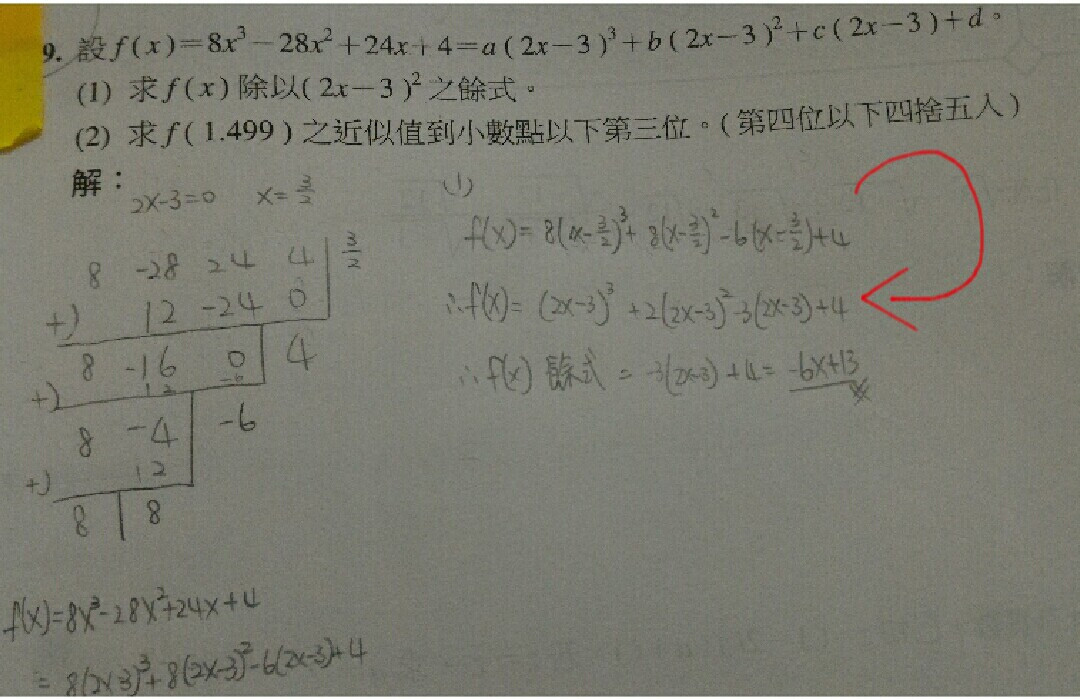 9. 設 f(x)=8x³-28x²+24x+4=a(2x-3)³+b(2x-3)²+c(2x-3)+d。
(1) 求 f(x) 除以(2x-3)² 之餘式。
(2) 求 f(1.499) 之近似值到小數點以下第三位。(第四位以下四捨五入)
解:
2x-3=0 x=3/2
8 -28 24 4 | 3/2
+) 12 -24 0
8 -16 0 | 4
+) 12 -6
8 -4 | -6
+) 12
8 | 8
f(x)=8x³-28x²+24x+4
=8(2x-3)³+8(2x-3)²-6(2x-3)+4
(1)
f(x)=8(x-3/2)³+8(x-3/2)²-6(x-3/2)+4
∴f(x)=(2x-3)³+2(2x-3)²-3(2x-3)+4
∴f(x) 餘式 = -3(2x-3)+4=-6x+13